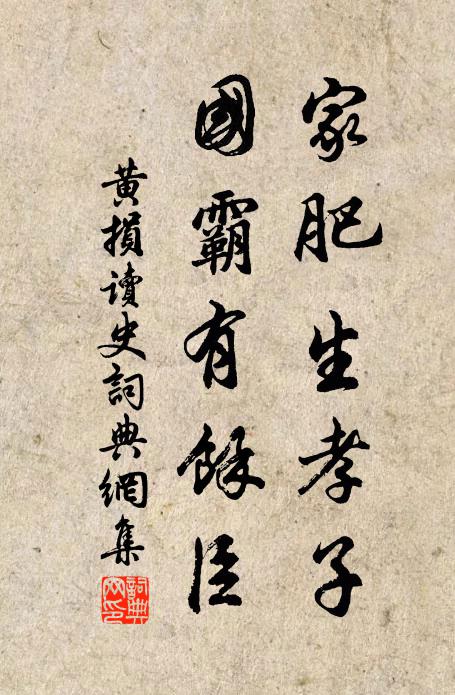 家肥生孝子
國霸有餘臣
黃損讀史詞典網集
詞典
网印